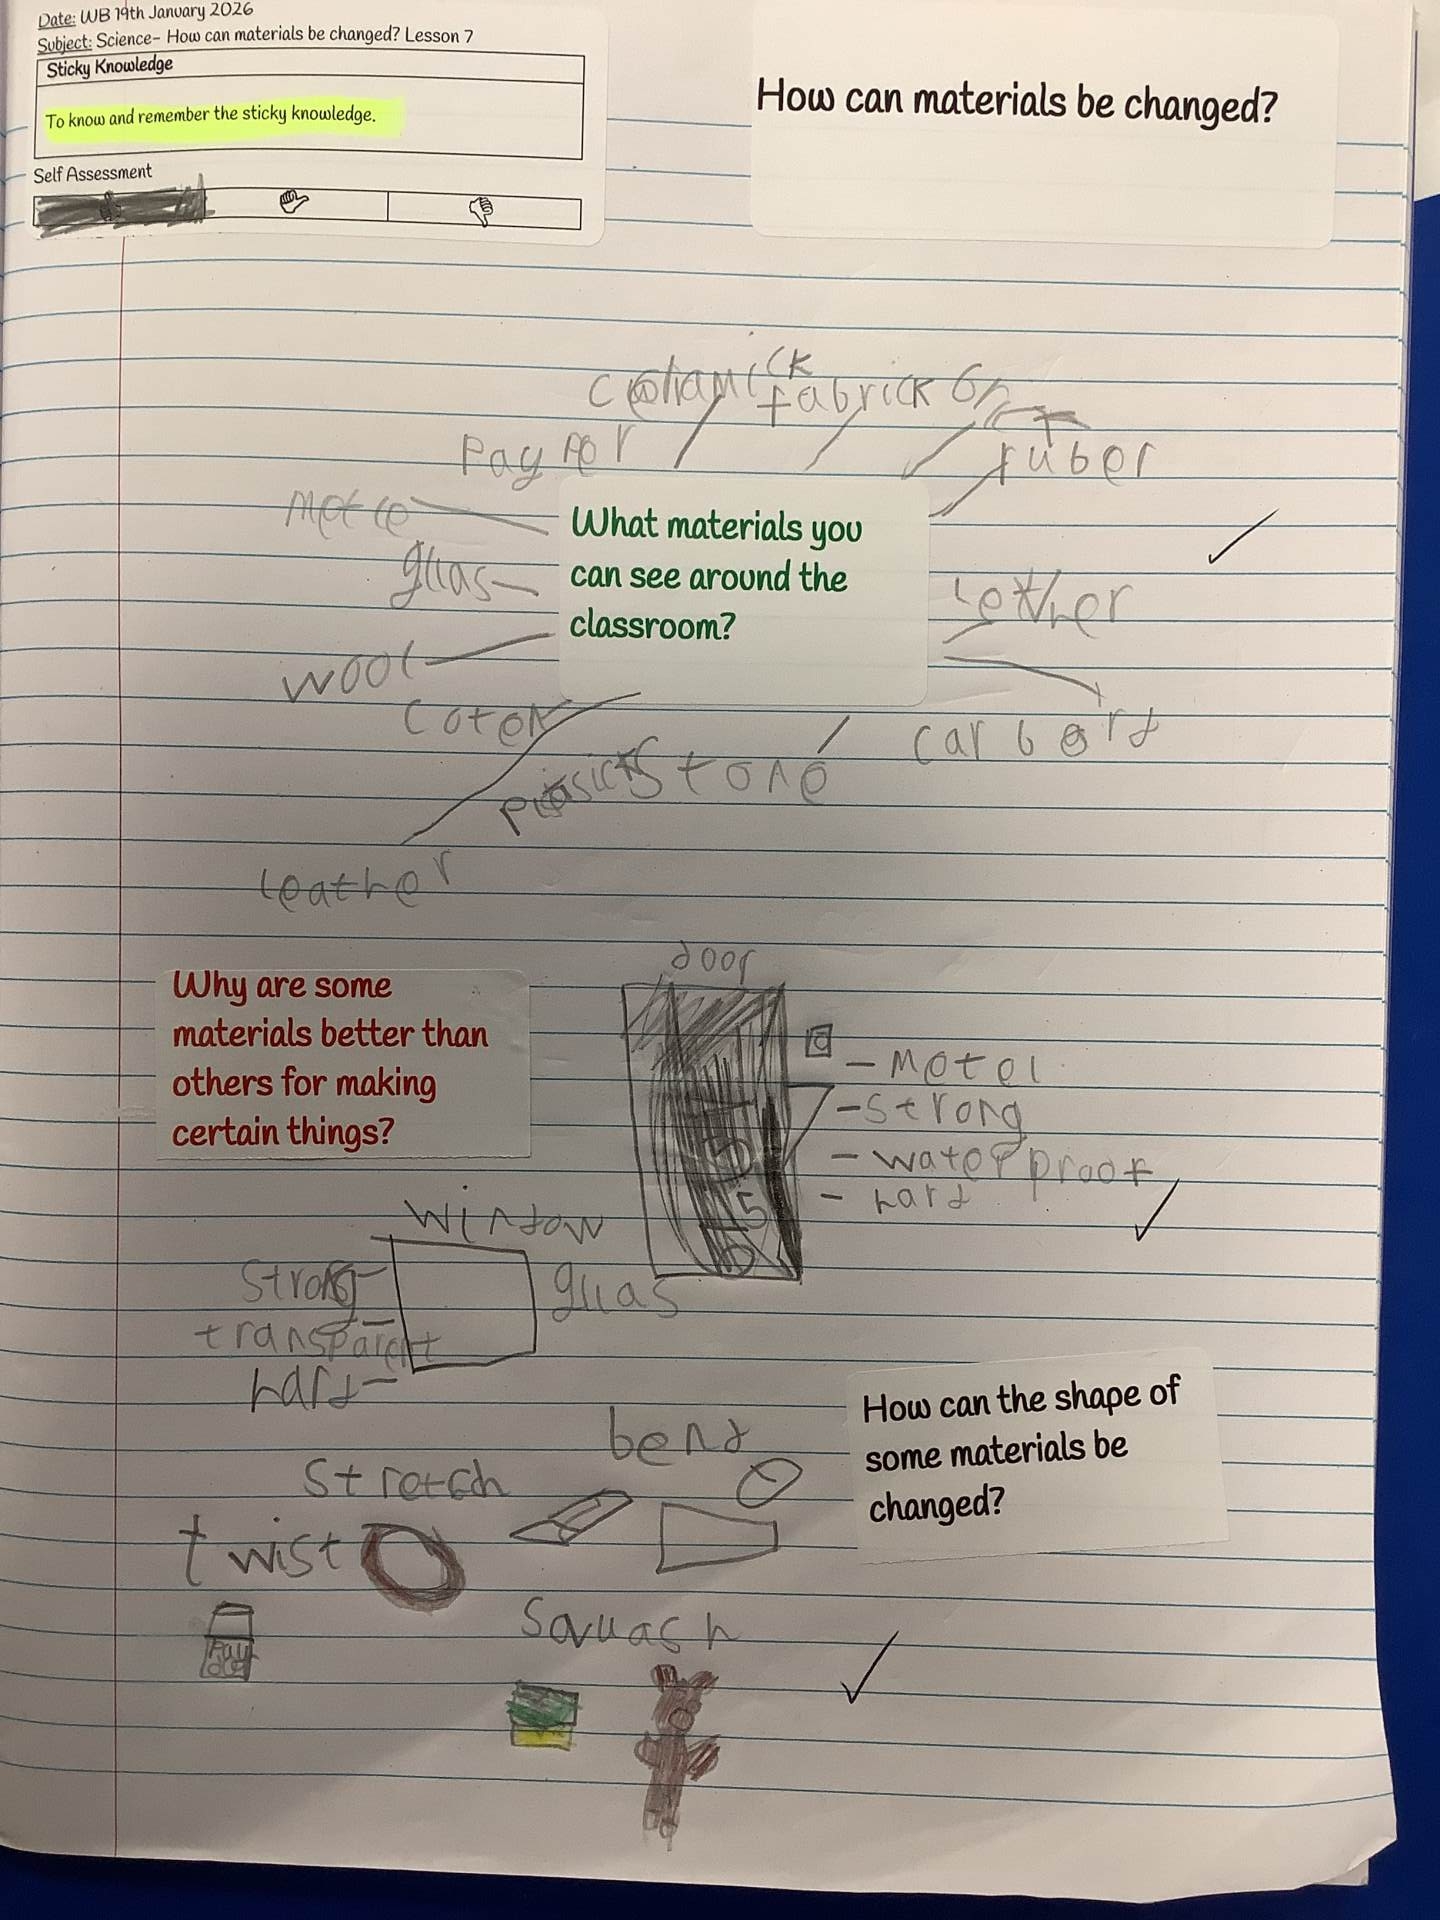 Date: WB 19th January 2026
Subject: Science- How can materials be changed? Lesson 7
Sticky Knowledge
To know and remember the sticky knowledge.
Self Assessment
How can materials be changed?
fabrick
payper
ruber
What materials you
can see around the
classroom?
gllas
lether
wool
coten
carbord
stone
leather
Why are some
materials better than
others for making
certain things?
door
- Metel
- strong
- waterproof
- hard
window
strong
gllas
transparent
hard
How can the shape of
some materials be
changed?
bend
stretch
twist
squash